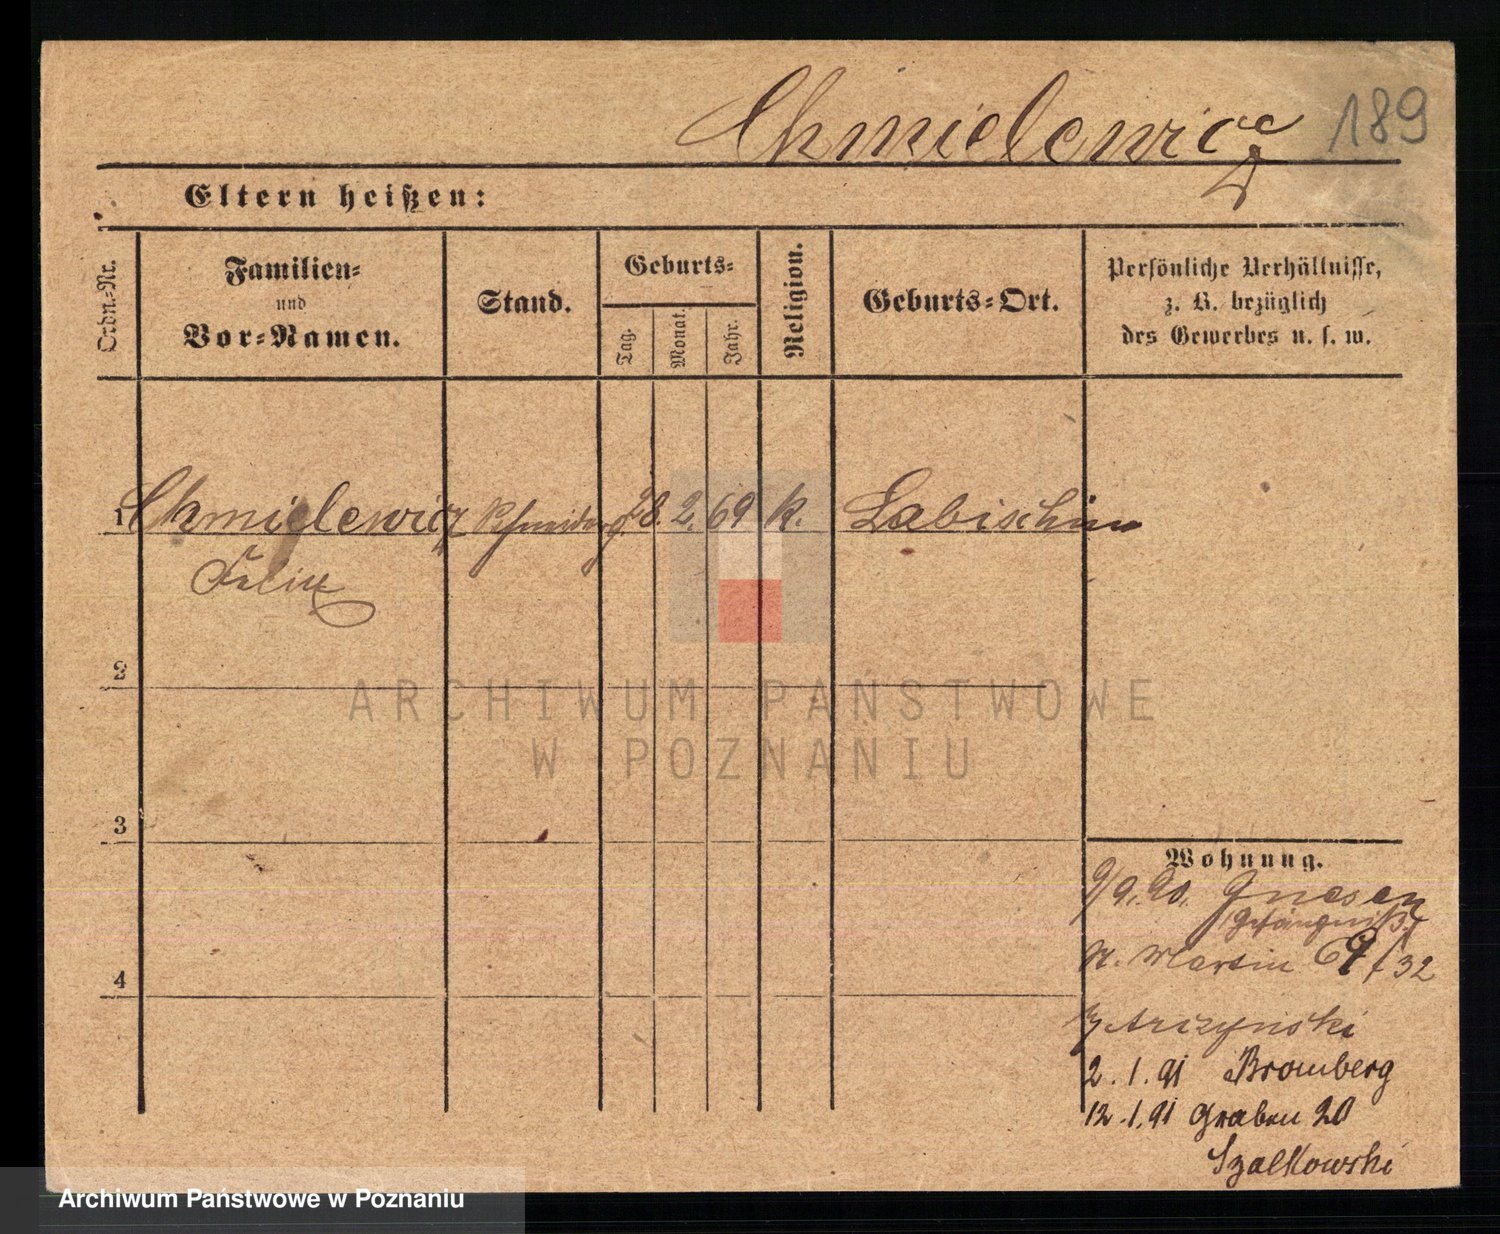 Chmielewicz 189
Eltern heißen:
Ordn.-Nr.
Familien-
und
Vor-Namen.
Stand.
Geburts-
Tag.
Monat.
Jahr.
Religion.
Geburts-Ort.
Persönliche Verhältnisse,
z. B. bezüglich
des Gewerbes u. s. w.
1 Chmielewicz Schneiderg. 28. 2. 69 k. Labischin
Felix
2
3
4
Wohnung.
9/9. 90. Gnesen
Gefängniß
St. Martin 67/32
2.1.91 Bromberg
12.1.91 Graben 20
Szalkowski
ARCHIWUM PAŃSTWOWE
W POZNANIU
Archiwum Państwowe w Poznaniu